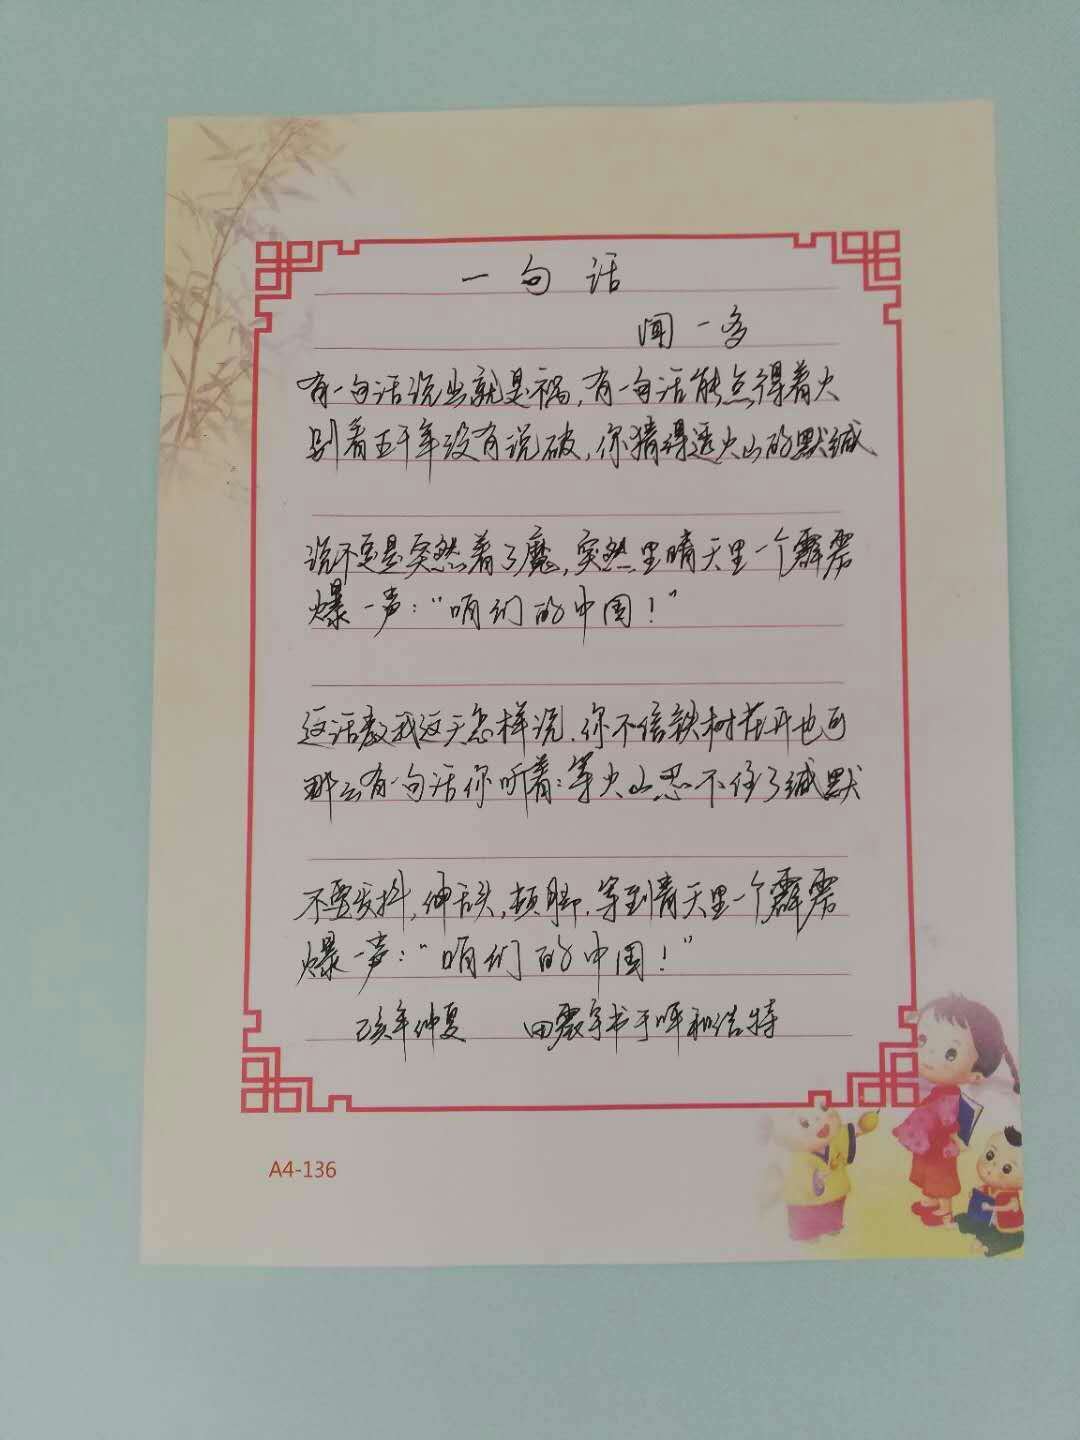 一句话
闻一多
有一句话说出就是祸,有一句话能点得着火
别看五千年没有说破,你猜得透火山的默缄
说不定是突然着了魔,突然里晴天里一个霹雳
爆一声:“咱们的中国!”
这话教我这天怎样说,你不信铁树花开也可
那么有一句话你听着:等火山忍不住了缄默
不要发抖,伸舌头,顿脚,等到青天里一个霹雳
爆一声:“咱们的中国!”
己亥年仲夏 田震宇书于呼和浩特
A4-136